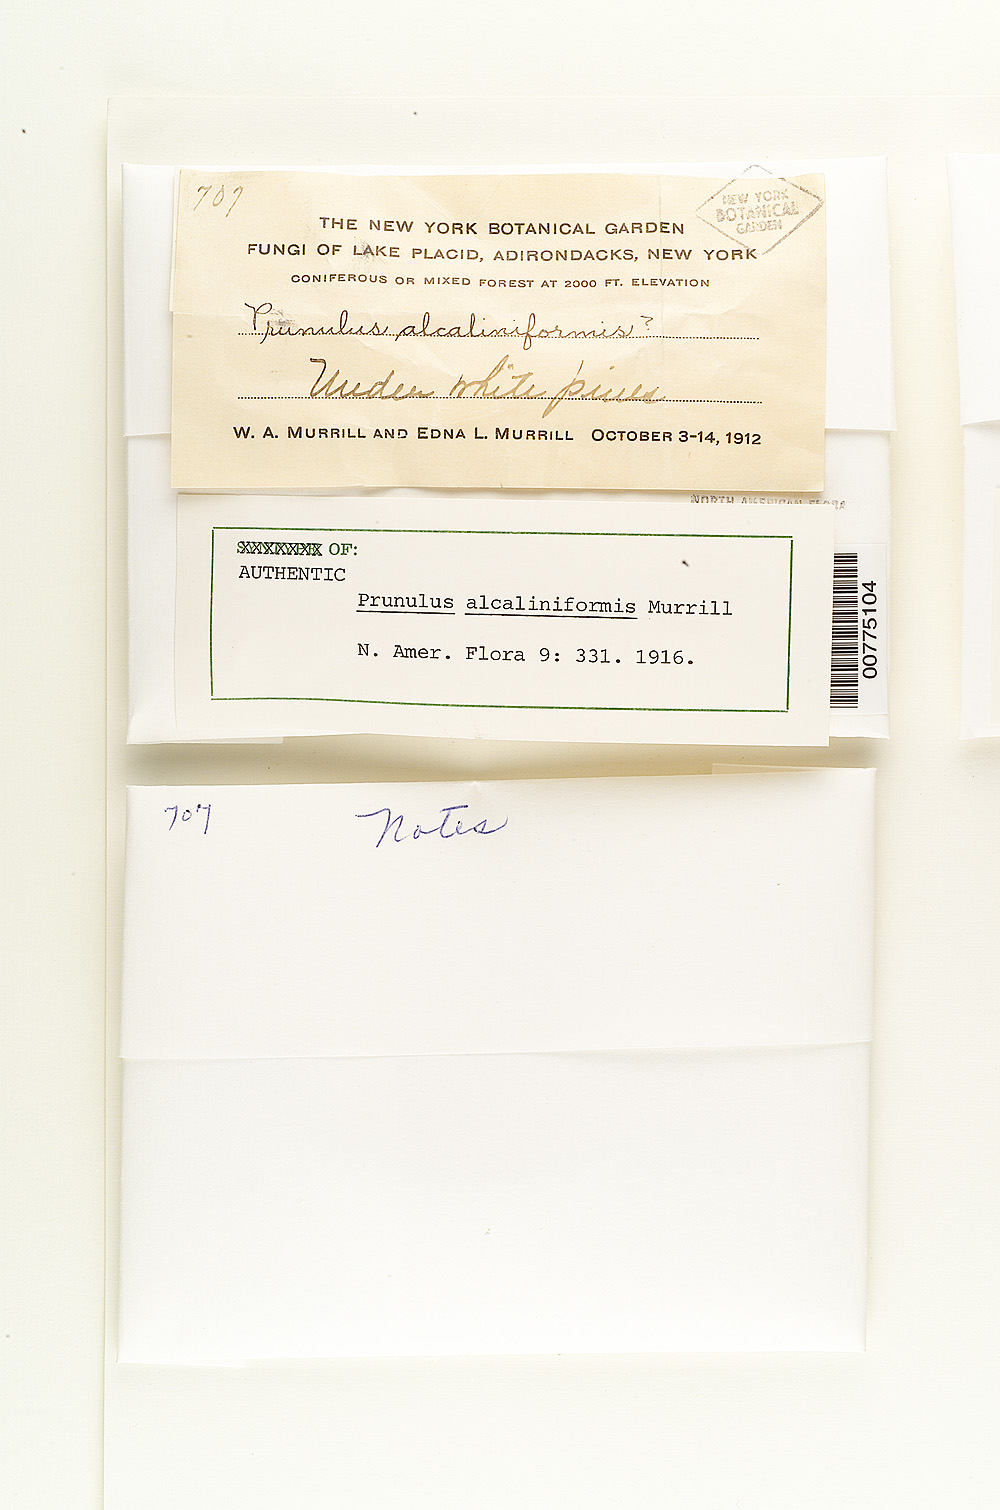 707
NEW YORK
BOTANICAL
GARDEN
THE NEW YORK BOTANICAL GARDEN
FUNGI OF LAKE PLACID, ADIRONDACKS, NEW YORK
CONIFEROUS OR MIXED FOREST AT 2000 FT. ELEVATION
Prunulus alcaliniformis?
Under white pines
W. A. MURRILL AND EDNA L. MURRILL OCTOBER 3-14, 1912
NORTH AMERICAN FLORA
OF:
AUTHENTIC
Prunulus alcaliniformis Murrill
N. Amer. Flora 9: 331. 1916.
00775104
707 Notes